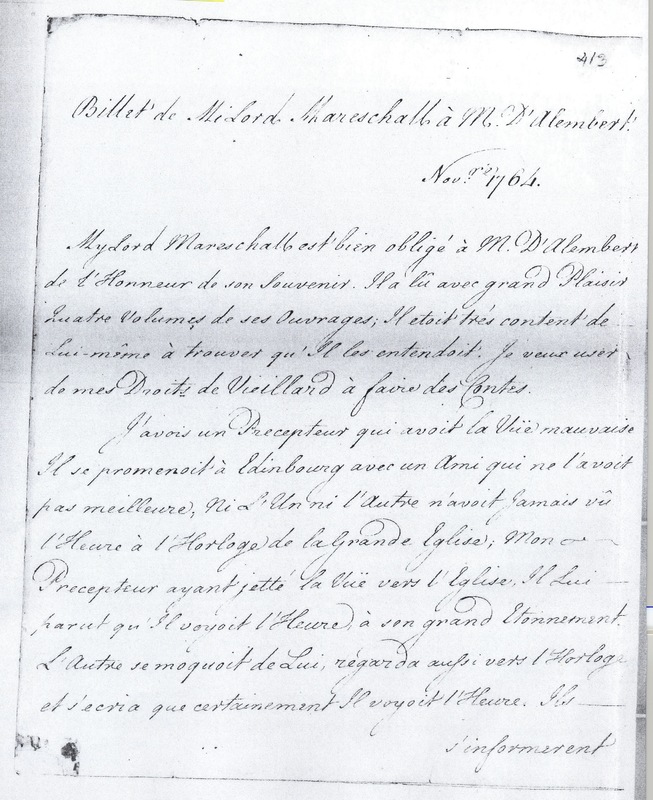 413
Billet de MiLord Mareschall à M. D'Alembert.
Nov.re 1764.
MyLord Mareschall est bien obligé à M. D'Alembert
de L'Honneur de son Souvenir. Il a lû avec grand Plaisir
Quatre Volumes de ses Ouvrages; Il etoit trés content de
Lui-même à trouver qu'Il les entendoit. Je veux user
de mes Droits de Vieillard à faire des Contes.
J'avois un Precepteur qui avoit la Vüe mauvaise
Il se promenoit à Edinbourg avec un Ami qui ne l'avoit
pas meilleure; Ni L'Un ni l'Autre n'avoit Jamais vû
l'Heure à l'Horloge de la Grande Eglise; Mon
Precepteur ayant jetté la Vüe vers l'Eglise, Il Lui
parut qu'Il voyoit l'Heure, à son grand Etonnement.
L'Autre se moquoit de Lui, régarda aussi vers l'Horloge
et s'ecria que certainement Il voyoit l'Heure. Ils
s'informerent